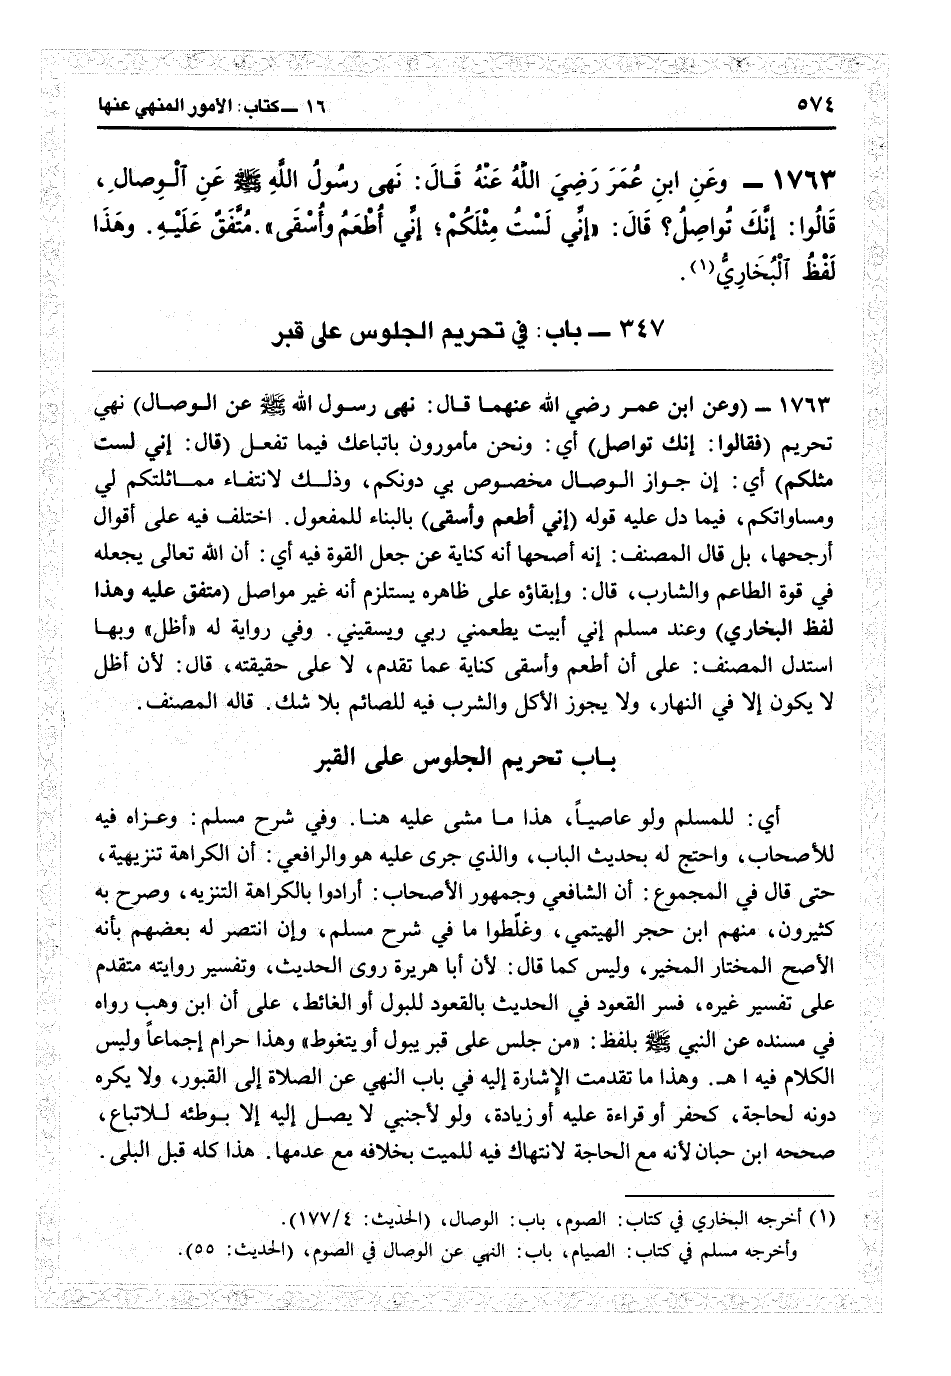 ٥٧٤
١٦ ــ كتاب: الأمور المنهي عنها
١٧٦٣ ــ وعَنِ ابنِ عُمَرَ رَضِيَ اللَّهُ عَنْهُ قَـالَ: نَهى رسُولُ اللَّهِ ﷺ عَنِ ٱلْـوِصالِ،
قَالُوا: إنَّكَ تُواصِلُ؟ قَالَ: «إنِّي لَسْتُ مِثْلَكُمْ؛ إنِّي أُطْعَمُ وأُسْقَى». مُتَّفَقٌ عَلَيْـهِ. وهَذَا
لَفْظُ ٱلْبُخَارِيُّ(١).
٣٤٧ ــ باب: في تحريم الجلوس على قبر
١٧٦٣ ــ (وعن ابن عمـر رضي الله عنهمـا قـال: نهى رسـول الله ﷺ عن الـوصـال) نهي
تحريم (فقالوا: إنك تواصل) أي: ونحن مأمورون باتباعك فيما تفعـل (قال: إني لست
مثلكم) أي: إن جـواز الـوصـال مخصـوص بي دونكم، وذلـك لانتفـاء ممـاثلتكم لي
ومساواتكم، فيما دل عليه قوله (إني أطعم وأسقى) بالبناء للمفعول. اختلف فيه على أقوال
أرجحها، بل قال المصنف: إنه أصحها أنه كناية عن جعل القوة فيه أي: أن الله تعالى يجعله
في قوة الطاعم والشارب، قال: وإبقاؤه على ظاهره يستلزم أنه غير مواصل (متفق عليه وهذا
لفظ البخاري) وعند مسلم إني أبيت يطعمني ربي ويسقيني. وفي رواية له «أظل» وبهـا
استدل المصنف: على أن أطعم وأسقى كناية عما تقدم، لا على حقيقته، قال: لأن أظل
لا يكون إلا في النهار، ولا يجوز الأكل والشرب فيه للصائم بلا شك. قاله المصنف.
بـاب تحريم الجلوس على القبر
أي: للمسلم ولو عاصيـاً، هذا مـا مشى عليه هنـا. وفي شرح مسلم: وعـزاه فيه
للأصحاب، واحتج له بحديث الباب، والذي جرى عليه هو والرافعي: أن الكراهة تنزيهية،
حتى قال في المجموع: أن الشافعي وجمهور الأصحاب: أرادوا بالكراهة التنزيه، وصرح به
كثيرون، منهم ابن حجر الهيتمي، وغلّطوا ما في شرح مسلم، وإن انتصر له بعضهم بأنه
الأصح المختار المخير، وليس كما قال: لأن أبا هريرة روى الحديث، وتفسير روايته متقدم
على تفسير غيره، فسر القعود في الحديث بالقعود للبول أو الغائط، على أن ابن وهب رواه
في مسنده عن النبي ﷺ بلفظ: «من جلس على قبر يبول أو يتغوط» وهذا حرام إجماعاً وليس
الكلام فيه ا هـ. وهذا ما تقدمت الإشارة إليه في باب النهي عن الصلاة إلى القبور، ولا يكره
دونه لحاجة، كحفر أو قراءة عليه أو زيادة، ولو لأجنبي لا يصـل إليه إلا بـوطئه للاتباع،
صححه ابن حبان لأنه مع الحاجة لا انتهاك فيه للميت بخلافه مع عدمها. هذا كله قبل البلى.
(١) أخرجه البخاري في كتاب: الصوم، باب: الوصال، (الحديث: ١٧٧/٤).
وأخرجه مسلم في كتاب: الصيام، باب: النهي عن الوصال في الصوم، (الحديث: ٥٥).